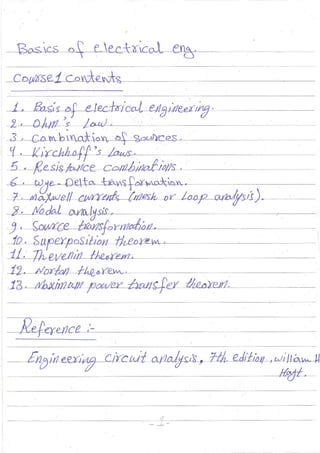 Basics of electrical eng.
Course 1 contents
1. Basis of electrical engineering.
2. Ohm's law.
3. Combination of sources.
4. Kirchhoff's laws.
5. Resistance combinations.
6. wye-Delta transformation.
7. maxwell currents (mesh or Loop analysis).
8. Nodal analysis.
9. Source transformation.
10. Superposition theorem.
11. Thevenin theorem.
12. Norton theorem.
13. Maximum power transfer theorem.
Reference :-
Engineering circuit analysis, 7th edition, william H
Hayt.
-1-